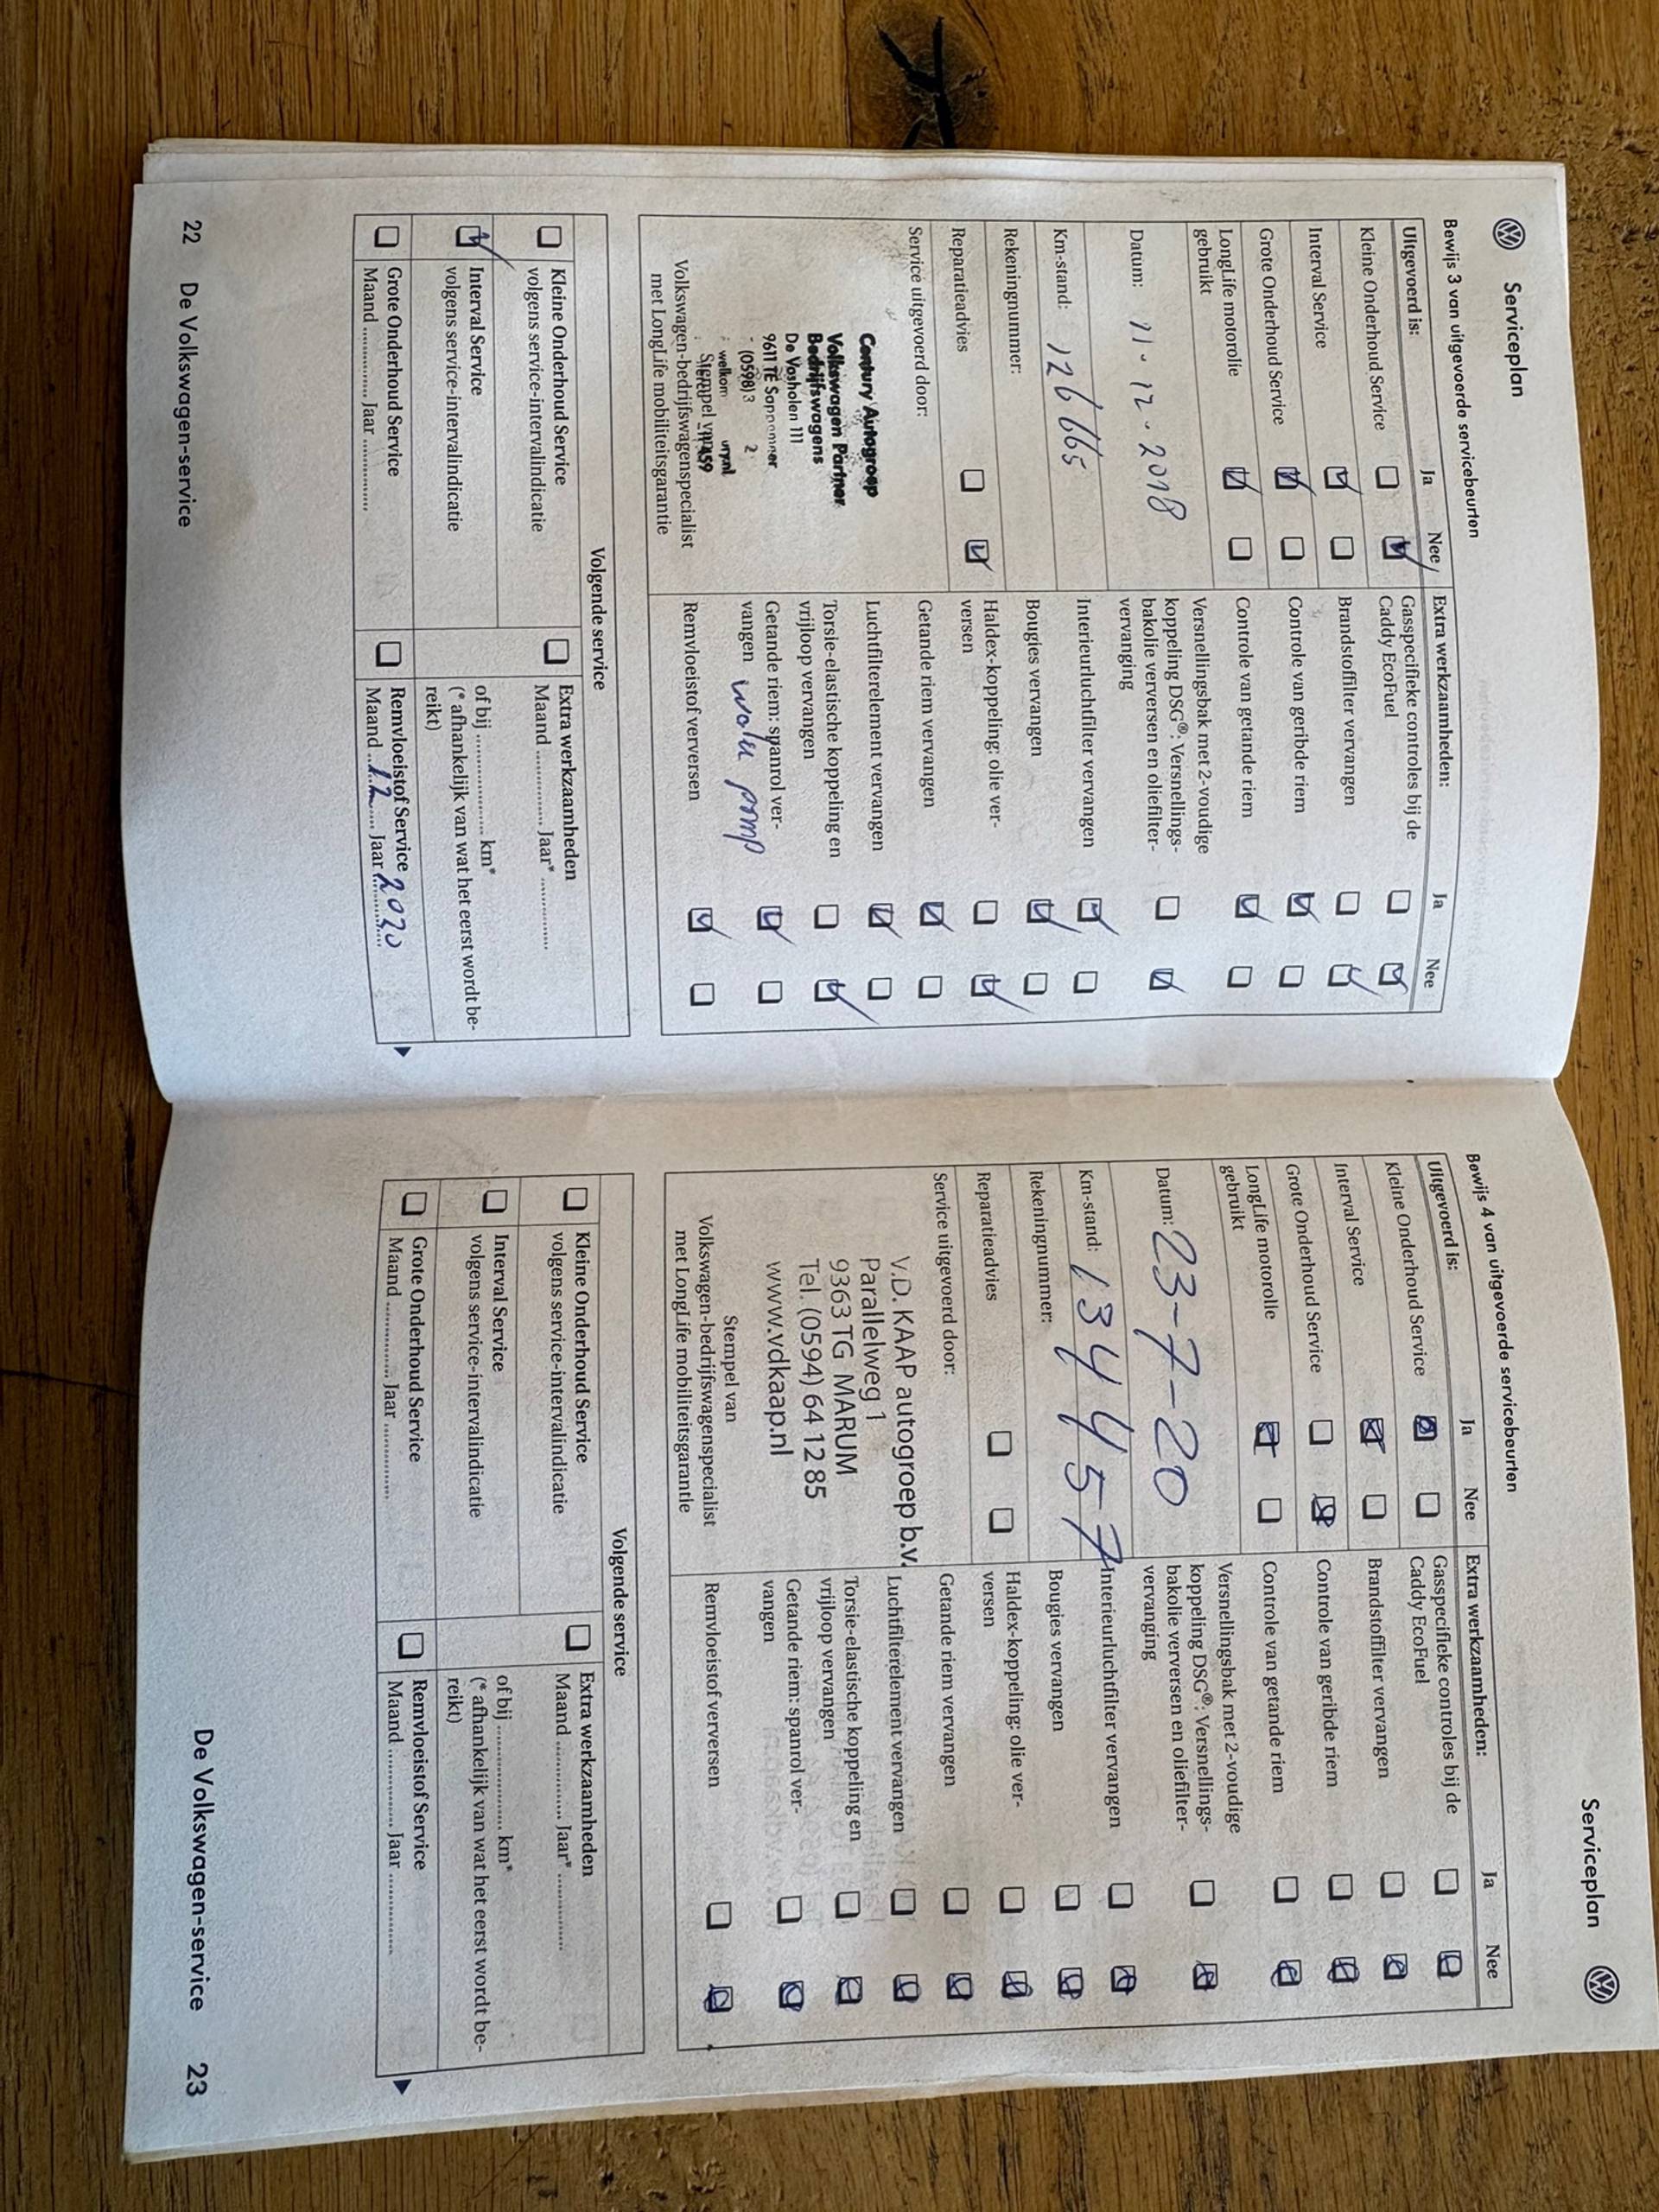 Serviceplan
Bewijs 3 van uitgevoerde servicebeurten
Uitgevoerd is: Ja Nee
Kleine Onderhoud Service
Interval Service
Grote Onderhoud Service
LongLife motorolie
gebruikt
Datum: 11-12-2018
Km-stand: 126665
Rekeningnummer:
Reparatieadvies
Service uitgevoerd door:
Century Autogroep
Volkswagen Partner
Bedrijfswagens
De Vosholen 111
9611 TE
(0598) 3 2
welkom
Stempel van
Volkswagen-bedrijfswagenspecialist
met LongLife mobiliteitsgarantie
Extra werkzaamheden: Ja Nee
Gasspecifieke controles bij de
Caddy EcoFuel
Brandstoffilter vervangen
Controle van geribde riem
Controle van getande riem
Versnellingsbak met 2-voudige
koppeling DSG®: Versnellings-
bakolie verversen en oliefilter-
vervanging
Interieurluchtfilter vervangen
Bougies vervangen
Haldex-koppeling: olie ver-
versen
Getande riem vervangen
Luchtfilterelement vervangen
Torsie-elastische koppeling en
vrijloop vervangen
Getande riem: spanrol ver-
vangen pomp
Remvloeistof verversen
Volgende service
Kleine Onderhoud Service
volgens service-intervalindicatie
Interval Service
volgens service-intervalindicatie
Grote Onderhoud Service
Maand .................. Jaar ..................
Extra werkzaamheden
Maand .................. Jaar* ..................
of bij .................. km*
(* afhankelijk van wat het eerst wordt be-
reikt)
Remvloeistof Service
Maand 12 Jaar 2020
22 De Volkswagen-service
Serviceplan
Bewijs 4 van uitgevoerde servicebeurten
Uitgevoerd is: Ja Nee
Kleine Onderhoud Service
Interval Service
Grote Onderhoud Service
LongLife motorolie
gebruikt
Datum: 23-7-20
Km-stand: 134457
Rekeningnummer:
Reparatieadvies
Service uitgevoerd door:
V.D. KAAP autogroep b.v.
Parallelweg 1
9363 TG MARUM
Tel. (0594) 64 12 85
www.vdkaap.nl
Stempel van
Volkswagen-bedrijfswagenspecialist
met LongLife mobiliteitsgarantie
Extra werkzaamheden: Ja Nee
Gasspecifieke controles bij de
Caddy EcoFuel
Brandstoffilter vervangen
Controle van geribde riem
Controle van getande riem
Versnellingsbak met 2-voudige
koppeling DSG®: Versnellings-
bakolie verversen en oliefilter-
vervanging
Interieurluchtfilter vervangen
Bougies vervangen
Haldex-koppeling: olie ver-
versen
Getande riem vervangen
Luchtfilterelement vervangen
Torsie-elastische koppeling en
vrijloop vervangen
Getande riem: spanrol ver-
vangen
Remvloeistof verversen
Volgende service
Kleine Onderhoud Service
volgens service-intervalindicatie
Interval Service
volgens service-intervalindicatie
Grote Onderhoud Service
Maand .................. Jaar ..................
Extra werkzaamheden
Maand .................. Jaar* ..................
of bij .................. km*
(* afhankelijk van wat het eerst wordt be-
reikt)
Remvloeistof Service
Maand .................. Jaar ..................
De Volkswagen-service 23